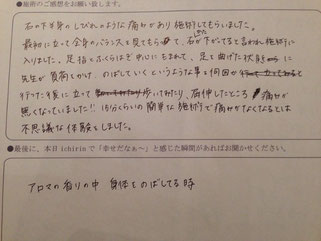 ●施術のご感想をお願い致します。
右の下半身のしびれのような痛みがあり施術してもらいました。
最初に立って全身のバランスを見てもらって、右が下がってると言われ施術に
入りました。足指とふくらはぎ中心をもまれて、足を曲げた状態に
先生が負荷をかけ、のばしていくというような事を何回か
行った後に立って歩いてみたり、屈伸したところ痛みが
無くなっていました!! 15分くらいの簡単な施術で痛みがなくなるとは
不思議な体験をしました。
●最後に、本日ichirinで「幸せだなぁ〜」と感じた瞬間があればお聞かせください。
アロマの香りの中 身体をのばしてる時